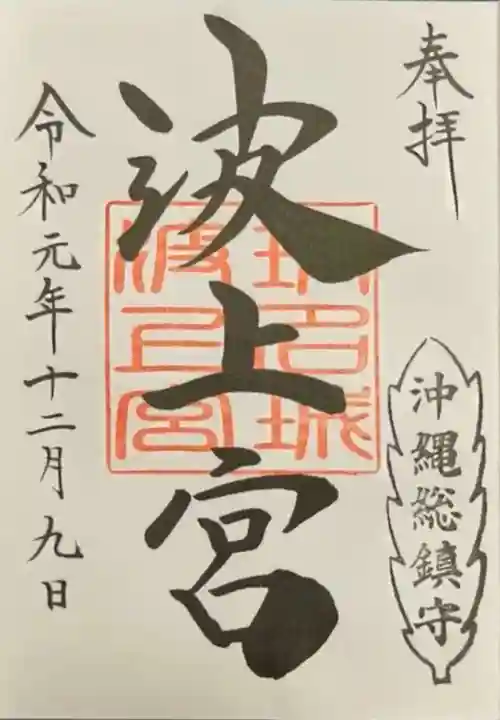 奉拝
沖縄総鎮守
波上宮
琉球城
波上宮
令和元年十二月九日